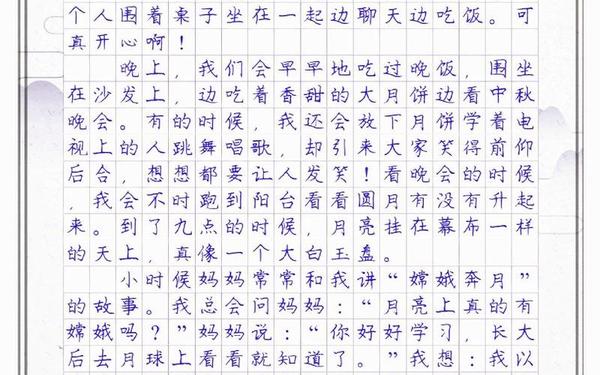 个人围着桌子坐在一起边聊天边吃饭。可
真开心啊！
晚上，我们会早早地吃过晚饭，围坐
在沙发上，边吃着香甜的大月饼边看中秋
晚会。有的时候，我还会放下月饼学着电
视上的人跳舞唱歌，却引来大家笑得前仰
后合，想想都要让人发笑！看晚会的时候
，我会不时跑到阳台看看圆月有没有升起
来。到了九点的时候，月亮挂在幕布一样
的天上，真像一个大白玉盘。
小时候妈妈常常和我讲“嫦娥奔月”
的故事。我总会问妈妈：“月亮上真的有
嫦娥吗？”妈妈说：“你好好学习，长大
后去月球上看看就知道了。”我想：我以